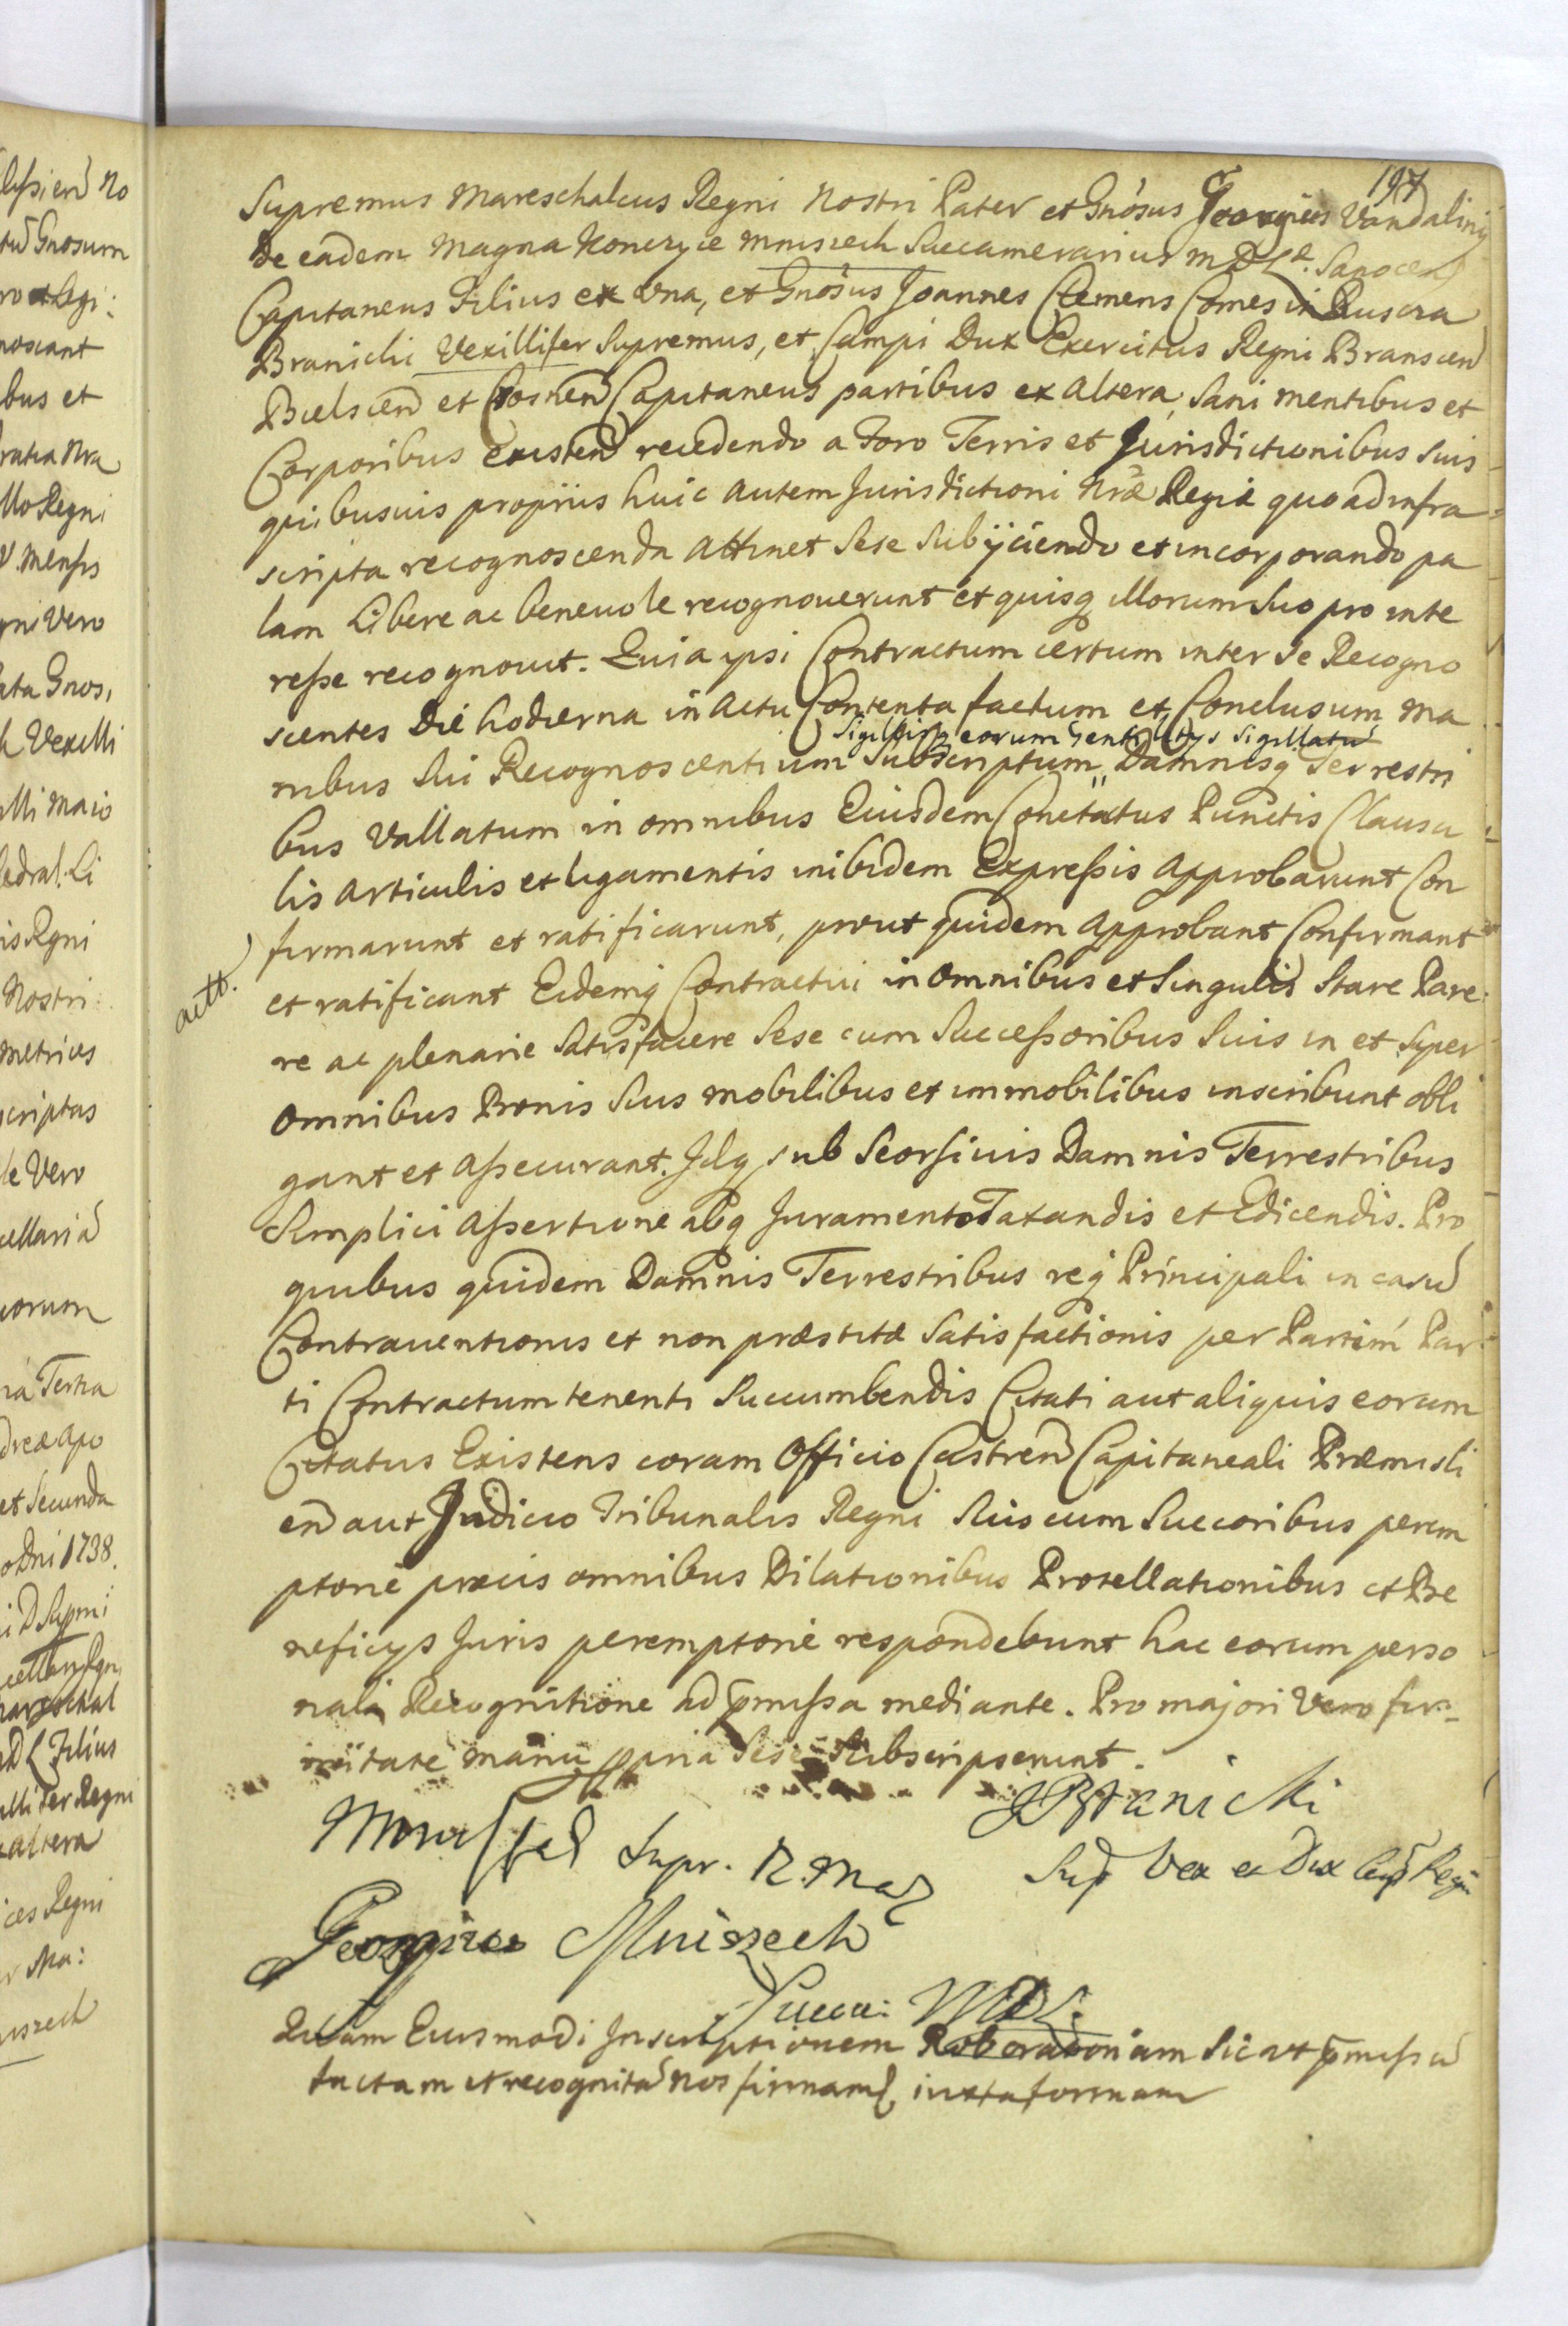 197
Supremus Mareschalcus Regni Nostri Pater et Gnosus Georgius Vandalinus
De eadem Magna Konczyce Mniszech Succamerarius M D L. Sanocen
Capitaneus Filius ex una, et Gnosus Joannes Clemens Comes in Ruscza
Branicki Vexillifer Supremus, et Campi Dux Exercitus Regni Branscen
Bielscen et Crosnen Capitaneus partibus ex altera, Sani mentibus et
Corporibus Existen recedendo a Foro Terris et Jurisdictionibus suis
quibusuis propriis huic autem Jurisdictioni Nrae Regiae quo ad infra=
scripta recognoscenda attinet Sese Subijciendo et incorporando pa
lam Libere ac beneuole recognouerunt et quisq illorum Suo pro inte
resse recognouit. Quia ipsi Contractum certum inter se Recogno
scentes Die hodierna in actu Contenta factum et Conclusum Ma
Sigillisq eorum Gentilitys Sigillatu
nibus Sui Recognoscentium Subscriptum Damnisq Terrestri
bus Vallatum in omnibus Eiusdem Contractus Punctis Clausu
lis articulis et ligamentis inibidem Expressis Approbarunt Con
firmarunt et ratificarunt, prout quidem approbant Confirmant
actt.
et ratificant Eidemq Contractui in Omnibus et Singulis Stare Pare
re ac plenarie Satisfacere Sese cum Successoribus Suis in et Super
Omnibus Bonis Suis mobilibus et immobilibus inscribunt obli
gant et assecurant. Idq sub Seorsiuis Damnis Terrestribus
Simplici assertione absq Juramento Taxandis et Edicendis. Pro
quibus quidem Damnis Terrestribus reqz Principali in casu
Contrauentionis et non praestitae Satisfactionis per Partem Par
ti Contractum tenenti Succumbendis Citati aut aliquis eorum
Citatus Existens coram Officio Castren Capitaneali Praemisli
en aut Judicio Tribunalis Regni Suis cum Succoribus perem
ptorie praecis omnibus Dilationibus Protellationibus et Be
neficys Juris peremptorie respondebunt hac eorum perso
nali Recognitione ad pmissa mediante. Pro majori Vero fir=
mitate manu ppria Sese Subscripserunt.
JBranicki
Supr. R. Mar
Sup Vex et Dux Regni
Georgius Mniszech
Succa: MDL.
Quam Eiusmodi Inscriptionem Roboratoriam Sicut pmissu
factam et recognita nos iuxta formam